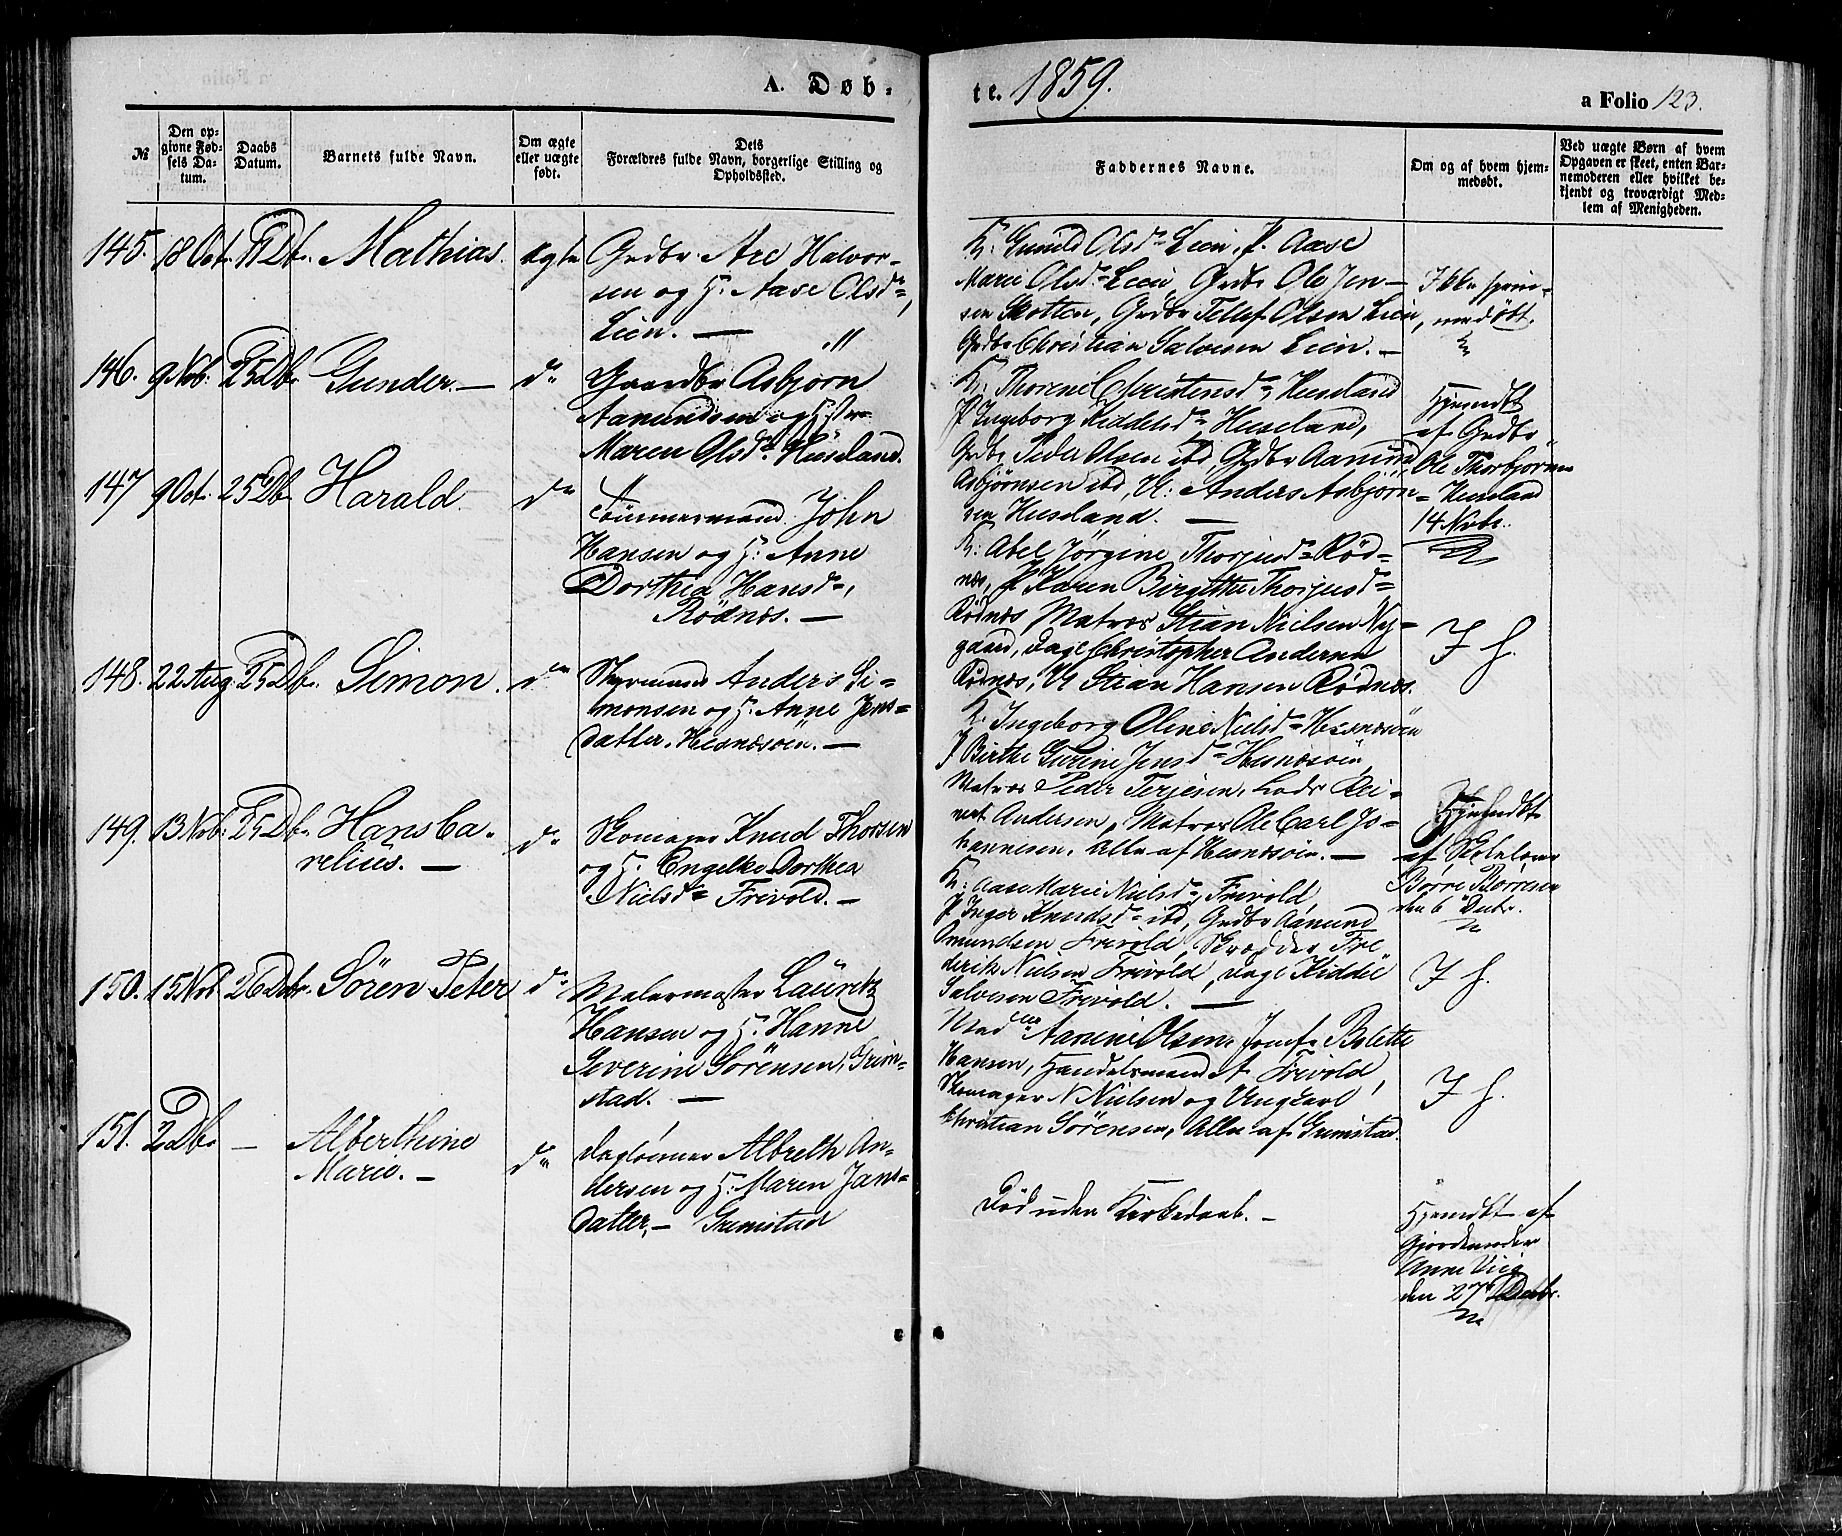 A. Døb-
te. 1859.
a Folio 123.
№
Den op-
givne Fød-
sels Da-
tum.
Daabs
Datum.
Barnets fulde Navn.
Om ægte
eller uægte
født.
Dets
Forældres fulde Navn, borgerlige Stilling og
Opholdssted.
Faddernes Navne.
Om og af hvem hjem-
medøbt.
Ved uægte Børn af hvem
Opgaven er skeet, enten Bar-
nemoderen eller hvilket be-
kjendt og troværdigt Med-
lem af Menigheden.
145. 18 Oct. 11 Db. Mathias. ægte Grdbr. Are Halvor-
sen og H. Aase Olsd,
Lien. —
K. Gunild Olsd Lien, P. Aase
Marie Olsd Lien, Grdbr Ole Jen-
sen Skotten, Grdbr Tellef Olsen Lien,
Grdbr Christian Salvesen Lien. —
Ikke hjem-
medøbt.
146. 9 Nvb. 25 Dbr Gunder. — do Gaardbr Asbjørn
Aanundsen og Hstr
Maren Olsd. Huseland.
K. Thorene Christensd Huseland
P Ingeborg Kiddelsd Huseland,
Grdbr Peder Olsen ibd, Grdbr Aanund
Asbjørnsen ibd, U: Anders Asbjørn-
sen Huseland. —
Hjemdbt
af Grdbr
Ole Thorbjørnsen
Huseland
14 Nvbr.
147 9 Oct. 25 Db Harald. do Tømmermand John
Hansen og H: Anne
Dorthea Hansd,
Rødnes. —
K: Abel Jørgine Thorjusd Rød-
nes, P Karen Birgithe Thorjusd
Rødnes Matros Stian Nielsen Ny-
gaard, Dagl Christopher Andersen
Rødnes, U Stian Hansen Rødnes.
I h.
148. 22 Aug. 25 Db. Simon. do Styrmand Anders Si-
monsen og H. Anne Jens-
datter. Hesnesøen. —
K. Ingeborg Oline Nielsd Hesnesøen
P Birthe Gurine Jensd Hesnesøen,
Matros Peder Terjesen, Lods Rei-
nert Andersen, Matros Ole Carl Jo-
hannesen. Alle af Hesnesøen. —
149. 13 Nvb. 25 Db. Hans Ca-
relius. — do Skomager Knud Thorsen
og H. Engelke Dorthea
Nielsd Frivold. —
K: Aase Marie Nielsd, Frivold,
P Inger Knudsd ibd, Grdbr Aanund
Omundsen Frivold, Skrædder Fre
derik Nielsen Frivold, Dagl Kiddil
Salvesen Frivold. —
Hjemdbt
af Skolelærer
Børre Børresen
den 6 Decbr.
150. 15 Nvb. 26 Decbr. Søren Peter do Malermester Lauritz
Hansen og H. Hanne
Severine Sørensen, Grim-
stad. —
Mad Aanine Olsen, Jomf Bolette
Hansen, Handelsmand A Frivold,
Skomager N Nielsen og Ungkarl
Christian Sørensen, Alle af Grimstad.
I h.
I h.
151. 2 Db — Alberthine
Marie. — do Dagleier Albreth An-
dersen og H. Maren Jans-
datter, — Grimstad
Død uden Kirkedaab. —
Hjemdbt af
Gjordemoder
Anne Viig
den 27 Decbr.